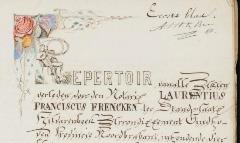 Eerste blad.
REPERTOIR van alle Akten
verleden voor den Notaris LAURENTIUS
FRANCISCUS FRENCKEN ter Standplaats
Hilvarenbeek Arrondissement Eindho-
ven Provincie Noordbrabant,